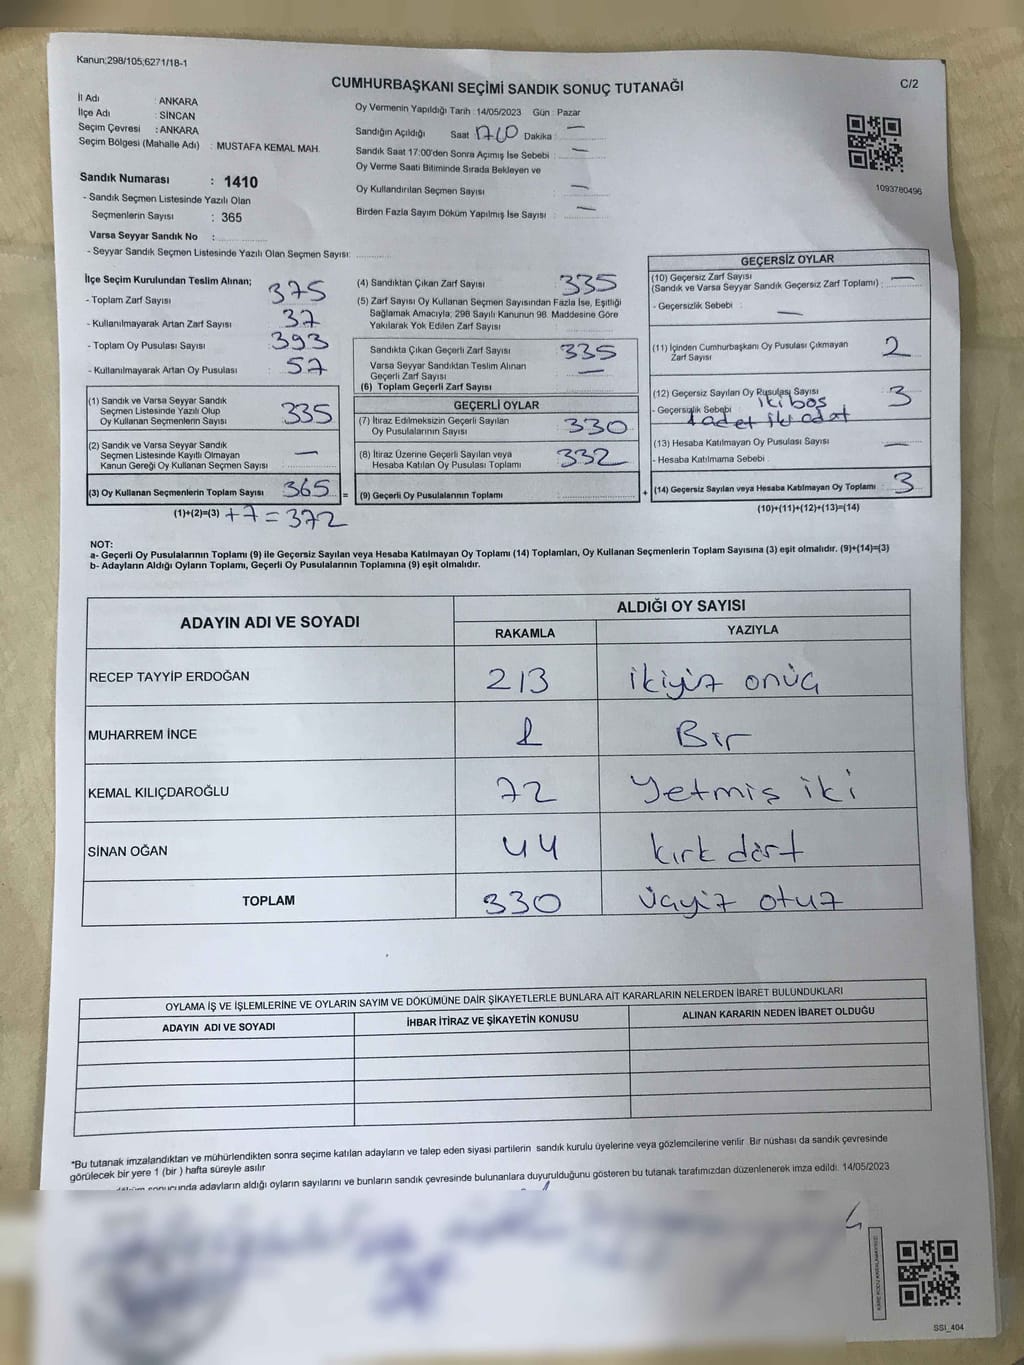 Kanun;298/105;6271/18-1
CUMHURBAŞKANI SEÇİMİ SANDIK SONUÇ TUTANAĞI
C/2
İl Adı : ANKARA
İlçe Adı : SİNCAN
Seçim Çevresi : ANKARA
Seçim Bölgesi (Mahalle Adı) : MUSTAFA KEMAL MAH.
Sandık Numarası : 1410
- Sandık Seçmen Listesinde Yazılı Olan
Seçmenlerin Sayısı : 365
Varsa Seyyar Sandık No :
- Seyyar Sandık Seçmen Listesinde Yazılı Olan Seçmen Sayısı:
Oy Vermenin Yapıldığı Tarih : 14/05/2023 Gün : Pazar
Sandığın Açıldığı Saat Dakika : —
Sandık Saat 17:00'den Sonra Açımış İse Sebebi : —
Oy Verme Saati Bitiminde Sırada Bekleyen ve
Oy Kullandırılan Seçmen Sayısı : —
Birden Fazla Sayım Döküm Yapılmış İse Sayısı : —
1093780496
İlçe Seçim Kurulundan Teslim Alınan;
- Toplam Zarf Sayısı : 375
- Kullanılmayarak Artan Zarf Sayısı : 37
- Toplam Oy Pusulası Sayısı : 393
- Kullanılmayarak Artan Oy Pusulası : 57
(1) Sandık ve Varsa Seyyar Sandık
Seçmen Listesinde Yazılı Olup
Oy Kullanan Seçmenlerin Sayısı : 335
(2) Sandık ve Varsa Seyyar Sandık
Seçmen Listesinde Kayıtlı Olmayan
Kanun Gereği Oy Kullanan Seçmen Sayısı : —
(3) Oy Kullanan Seçmenlerin Toplam Sayısı : 365 =
(1)+(2)=(3) +7=372
(4) Sandıktan Çıkan Zarf Sayısı : 335
(5) Zarf Sayısı Oy Kullanan Seçmen Sayısından Fazla İse, Eşitliği
Sağlamak Amacıyla, 298 Sayılı Kanunun 98. Maddesine Göre
Yakılarak Yok Edilen Zarf Sayısı :
Sandıkta Çıkan Geçerli Zarf Sayısı : 335
Varsa Seyyar Sandıktan Teslim Alınan
Geçerli Zarf Sayısı : —
(6) Toplam Geçerli Zarf Sayısı :
GEÇERLİ OYLAR
(7) İtiraz Edilmeksizin Geçerli Sayılan
Oy Pusulalarının Sayısı : 330
(8) İtiraz Üzerine Geçerli Sayılan veya
Hesaba Katılan Oy Pusulası Toplamı : 332
(9) Geçerli Oy Pusulalarının Toplamı : +
GEÇERSİZ OYLAR
(10) Geçersiz Zarf Sayısı
(Sandık ve Varsa Seyyar Sandık Geçersiz Zarf Toplamı) : —
- Geçersizlik Sebebi : —
(11) İçinden Cumhurbaşkanı Oy Pusulası Çıkmayan
Zarf Sayısı : 2
(12) Geçersiz Sayılan Oy Pusulası Sayısı : 3
- Geçersizlik Sebebi iki boş
1 adet iki adet
(13) Hesaba Katılmayan Oy Pusulası Sayısı : —
- Hesaba Katılmama Sebebi :
(14) Geçersiz Sayılan veya Hesaba Katılmayan Oy Toplamı : 3
(10)+(11)+(12)+(13)=(14)
NOT:
a- Geçerli Oy Pusulalarının Toplamı (9) ile Geçersiz Sayılan veya Hesaba Katılmayan Oy Toplamı (14) Toplamları, Oy Kullanan Seçmenlerin Toplam Sayısına (3) eşit olmalıdır. (9)+(14)=(3)
b- Adayların Aldığı Oyların Toplamı, Geçerli Oy Pusulalarının Toplamına (9) eşit olmalıdır.
ADAYIN ADI VE SOYADI ALDIĞI OY SAYISI
RAKAMLA YAZIYLA
RECEP TAYYİP ERDOĞAN 213 ikiyüz onüç
MUHARREM İNCE 1 Bir
KEMAL KILIÇDAROĞLU 72 Yetmiş iki
SİNAN OĞAN 44 kırk dört
TOPLAM 330 üçyüz otuz
OYLAMA İŞ VE İŞLEMLERİNE VE OYLARIN SAYIM VE DÖKÜMÜNE DAİR ŞİKAYETLERLE BUNLARA AİT KARARLARIN NELERDEN İBARET BULUNDUKLARI
ADAYIN ADI VE SOYADI İHBAR İTİRAZ VE ŞİKAYETİN KONUSU ALINAN KARARIN NEDEN İBARET OLDUĞU
*Bu tutanak imzalandıktan ve mühürlendikten sonra seçime katılan adayların ve talep eden siyasi partilerin sandık kurulu üyelerine veya gözlemcilerine verilir. Bir nüshası da sandık çevresinde
görülecek bir yere 1 (bir ) hafta süreyle asılır
sonucunda adayların aldığı oyların sayılarını ve bunların sandık çevresinde bulunanlara duyurulduğunu gösteren bu tutanak tarafımızdan düzenlenerek imza edildi. 14/05/2023
SSI_404